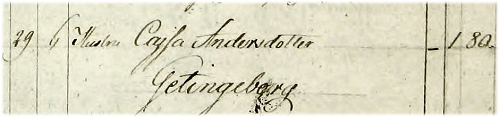 29 6 Hustru Cajsa Andersdotter – 1 80.
Getingeberg